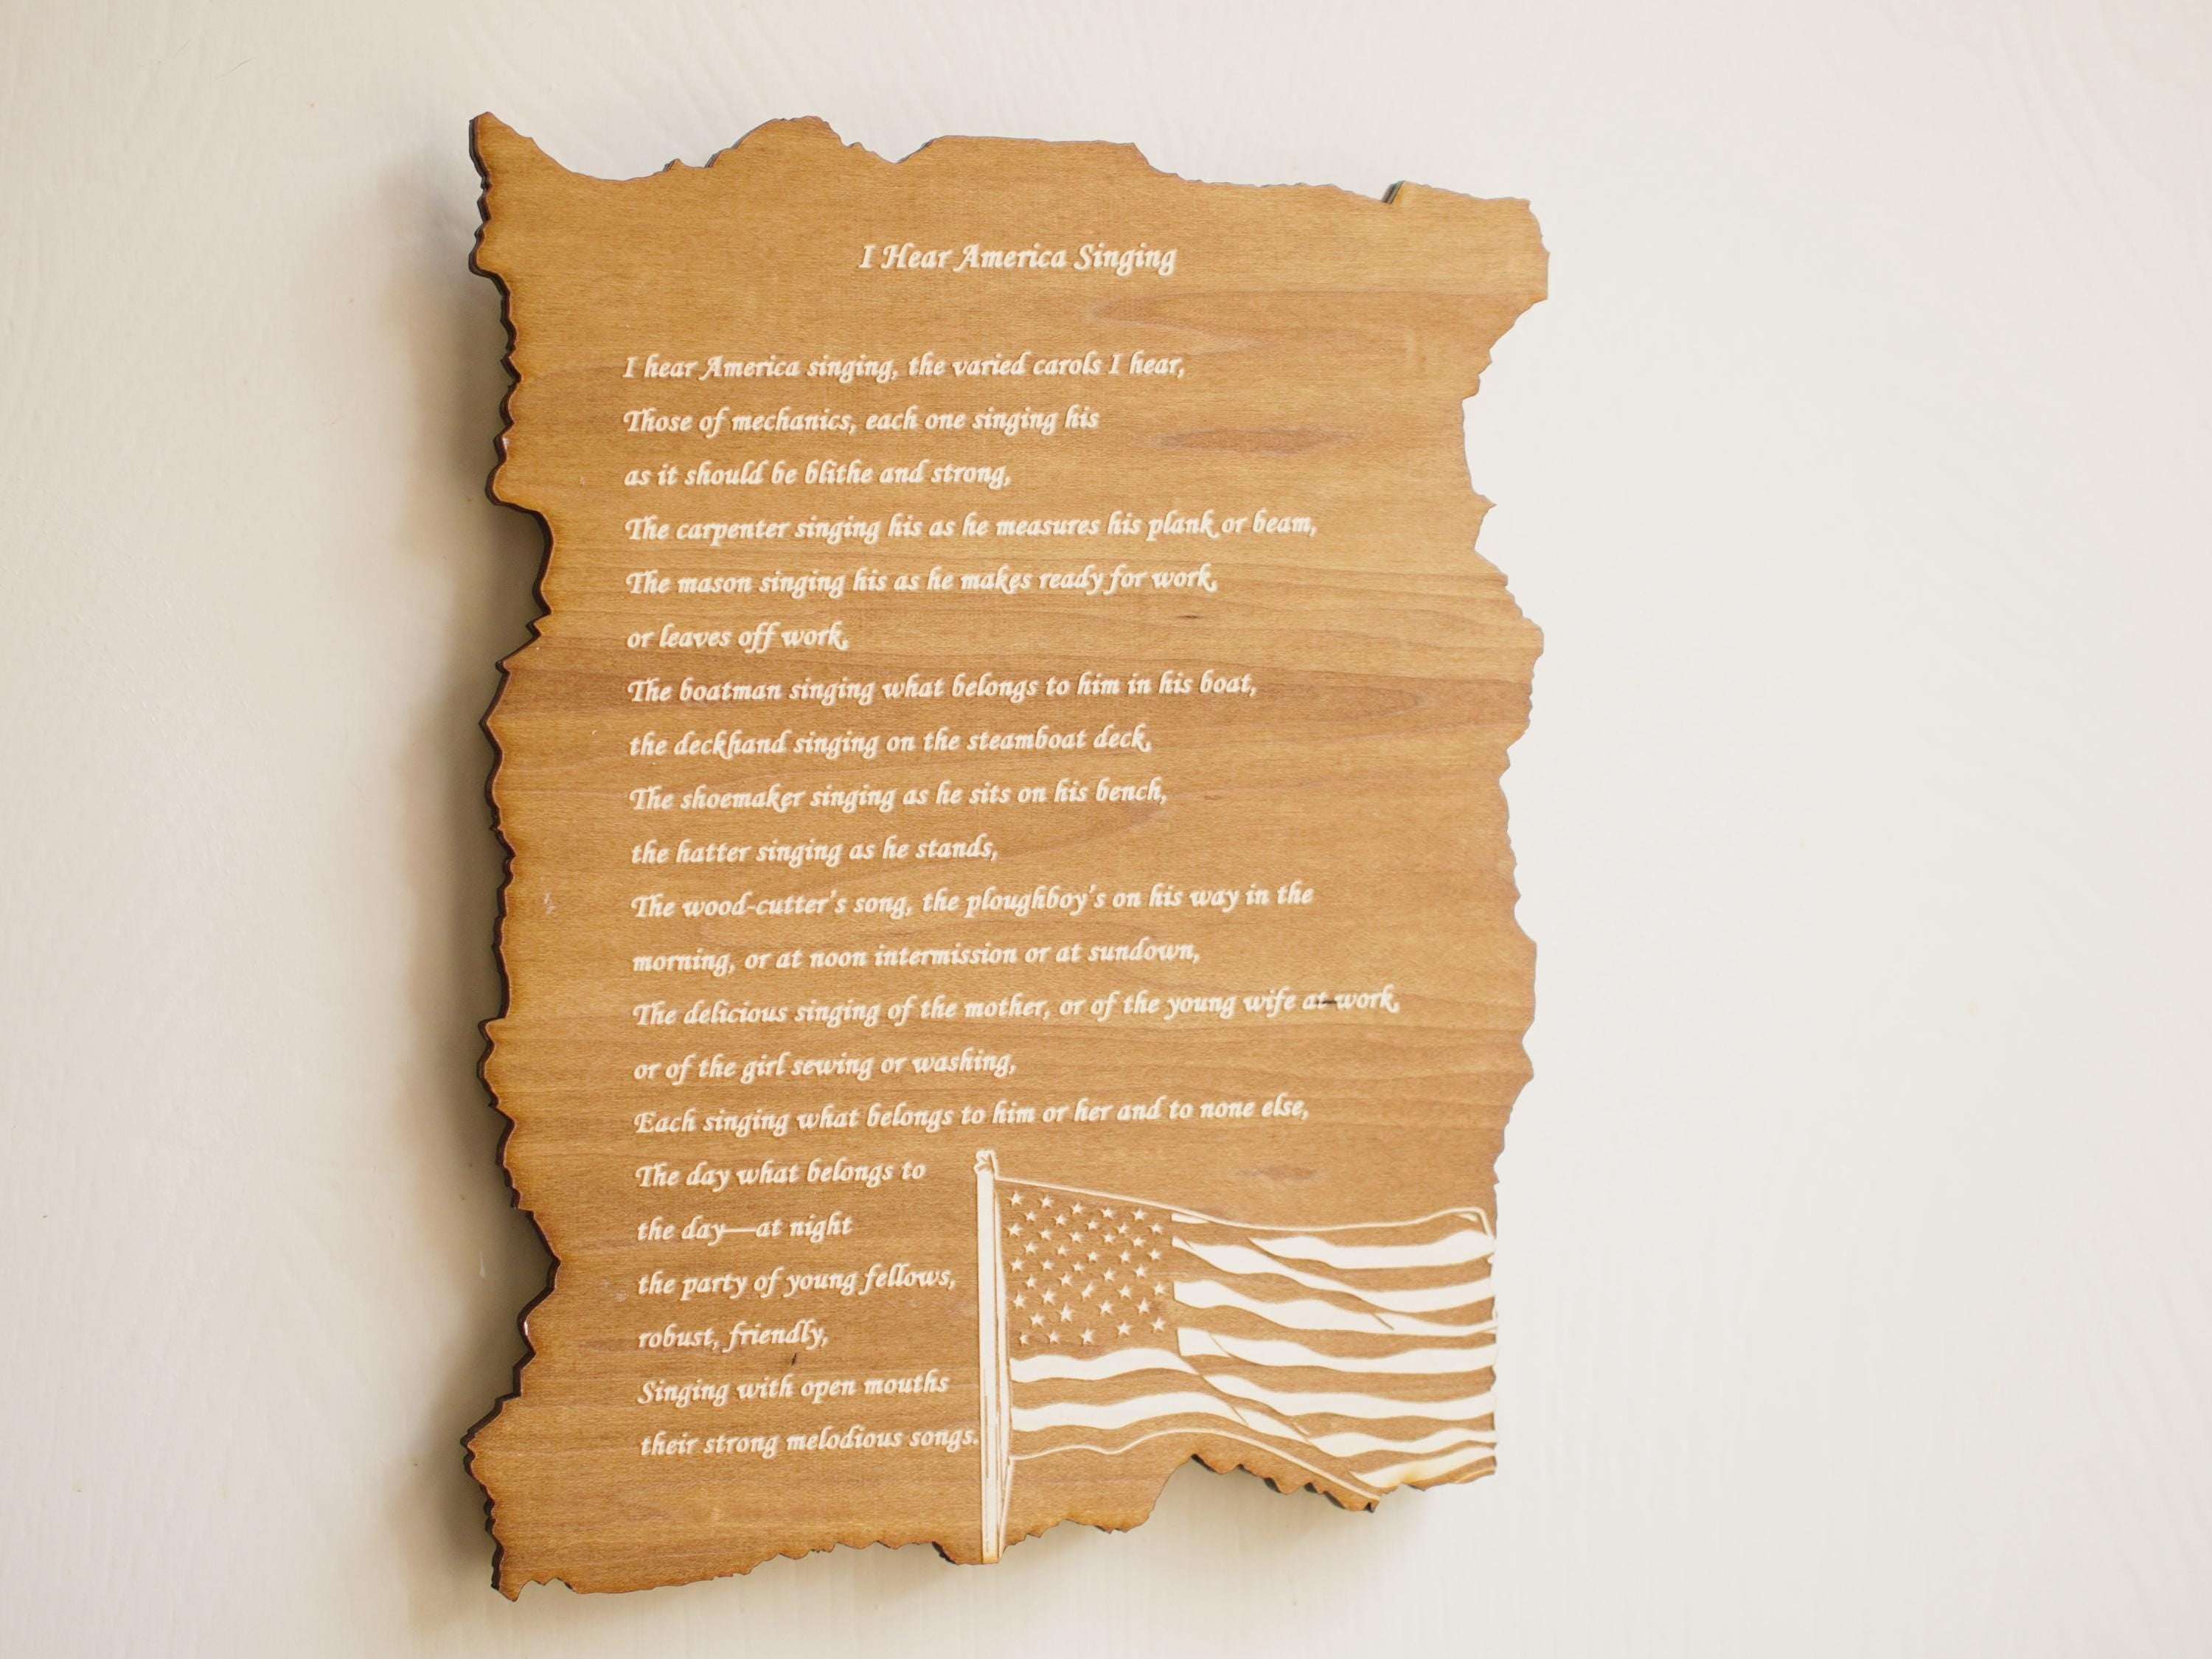 I Hear America Singing
I hear America singing, the varied carols I hear,
Those of mechanics, each one singing his
as it should be blithe and strong,
The carpenter singing his as he measures his plank or beam,
The mason singing his as he makes ready for work,
or leaves off work,
The boatman singing what belongs to him in his boat,
the deckhand singing on the steamboat deck,
The shoemaker singing as he sits on his bench,
the hatter singing as he stands,
The wood-cutter's song, the ploughboy's on his way in the
morning, or at noon intermission or at sundown,
The delicious singing of the mother, or of the young wife at work,
or of the girl sewing or washing,
Each singing what belongs to him or her and to none else,
The day what belongs to
the day—at night
the party of young fellows,
robust, friendly,
Singing with open mouths
their strong melodious songs.